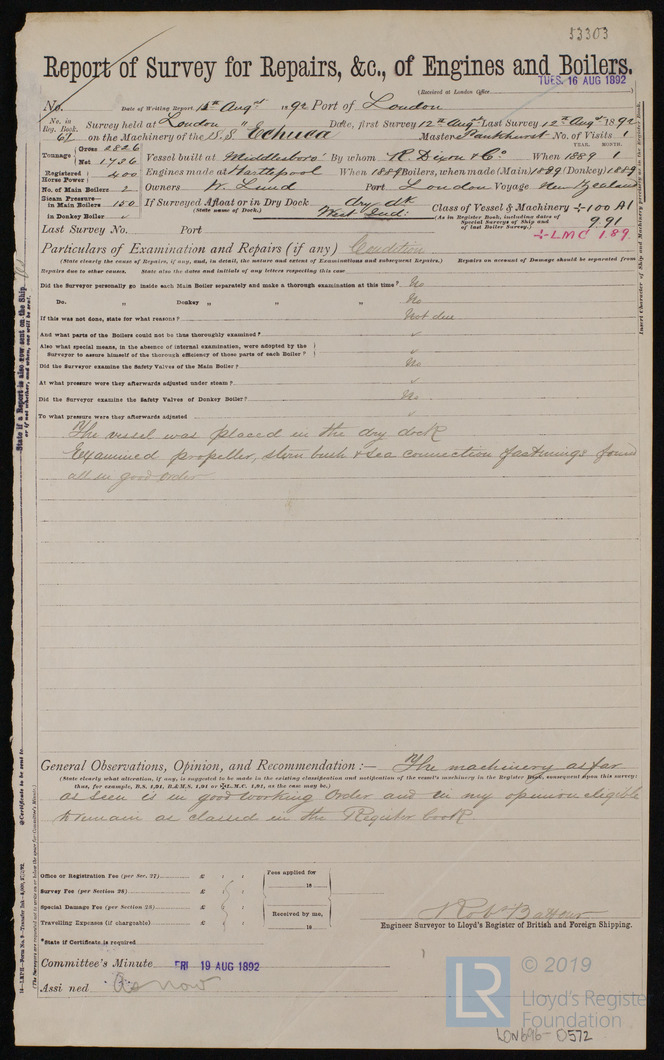 53303
Report of Survey for Repairs, &c., of Engines and Boilers.
(Received at London Office
TUES. 16 AUG 1892
No. Date of Writing Report 12th Augst 1892 Port of London
No. in Reg. Book. 67 Survey held at London Date, first Survey 12th Augst Last Survey 12th Augst 1892
on the Machinery of the S.S. Echuca Master Pankhurst No. of Visits 1
Tonnage Gross 2226 Net 1736 Vessel built at Middlesboro' By whom R. Dixon & Co. YEAR. MONTH. When 1889 1
Registered Horse Power 200 Engines made at Hartlepool When 1889 Boilers, when made (Main) 1889 (Donkey) 1889
No. of Main Boilers 2 Owners W. Lund Port London Voyage New Zealand
Steam Pressure in Main Boilers 150 If Surveyed Afloat or in Dry Dock dry dk Class of Vessel & Machinery +100 A1
in Donkey Boiler (State name of Dock.) West Ind: (As in Register Book, including dates of Special Surveys of Ship and of last Boiler Survey.) 9,91
Last Survey No. Port +LMC 1.89
Particulars of Examination and Repairs (if any) Condition
(State clearly the cause of Repairs, if any, and, in detail, the nature and extent of Examinations and subsequent Repairs.) Repairs on account of Damage should be separated from
Repairs due to other causes. State also the dates and initials of any letters respecting this case
Did the Surveyor personally go inside each Main Boiler separately and make a thorough examination at this time? No
Do. " Donkey " " " No
If this was not done, state for what reasons? Not due
And what parts of the Boilers could not be thus thoroughly examined?
Also what special means, in the absence of internal examination, were adopted by the
Surveyor to assure himself of the thorough efficiency of those parts of each Boiler?
Did the Surveyor examine the Safety Valves of the Main Boiler? No
At what pressure were they afterwards adjusted under steam?
Did the Surveyor examine the Safety Valves of Donkey Boiler? No
To what pressure were they afterwards adjusted
The vessel was placed in the dry dock
Examined propeller, stern bush & sea connection fastenings found
all in good order
General Observations, Opinion, and Recommendation :— The machinery as far
(State clearly what alteration, if any, is suggested to be made in the existing classification and notification of the vessel's machinery in the Register Book, consequent upon this survey:
thus, for example, B.S. 1,91, B.&M.S. 1,91 or +L.M.C. 1,91, as the case may be.)
as seen is in good working order and in my opinion eligible
to remain as classed in the Register book
Office or Registration Fee (per Sec. 27) £ Fees applied for
Survey Fee (per Section 28) £ 18
Special Damage Fee (per Section 28) £ Received by me,
Travelling Expenses (if chargeable) £ 18
Robt Balfour
Engineer Surveyor to Lloyd's Register of British and Foreign Shipping.
*State if Certificate is required
Committee's Minute FRI 19 AUG 1892
Assigned As now
State if a Report is also now sent on the Ship.
or if not whether, and when, one will be sent.
Certificate to be sent to
(The Surveyors are requested not to write on or below the space for Committee's Minute.)
Insert Character of Ship and Machinery precisely as in the Register Book.
LR © 2019
Lloyd's Register
Foundation
LON696-0572